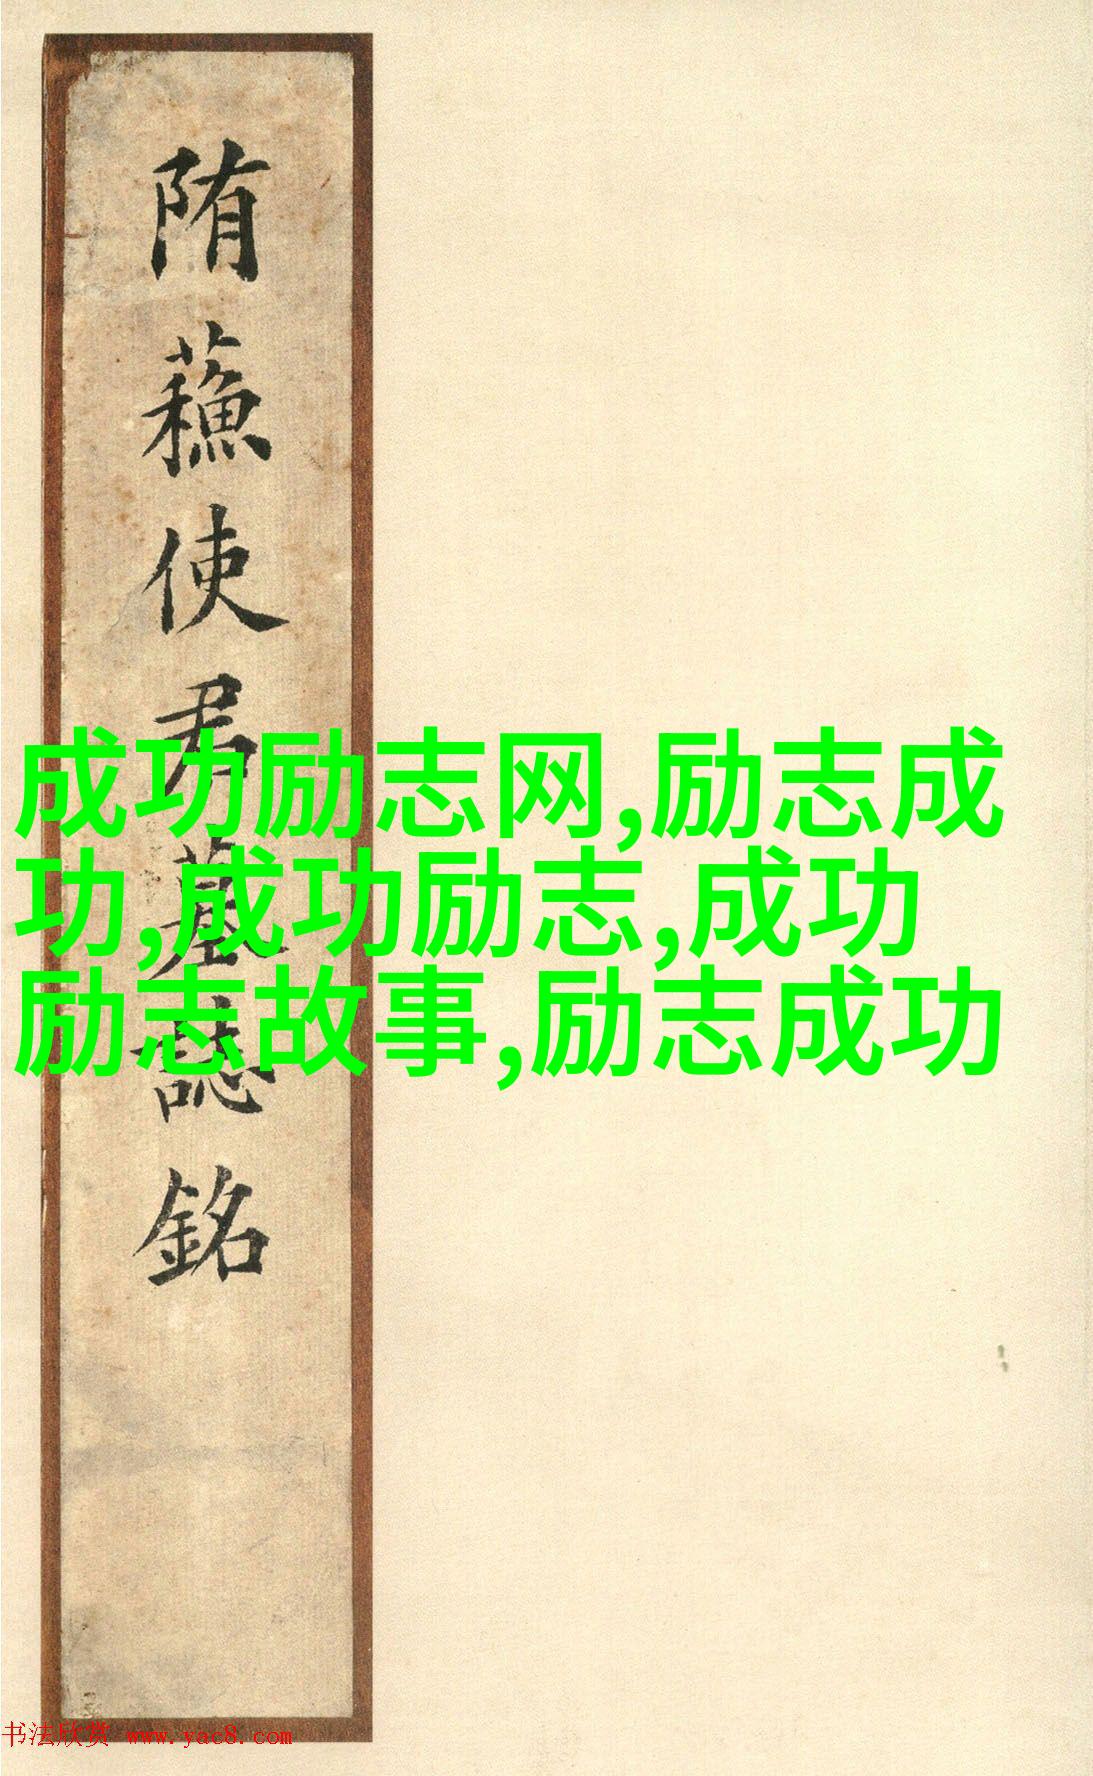 隋蘓使君墓誌銘
成功励志网,励志成
功,成功励志,成功
励志故事,励志成功
书法欣赏 www.yac8.com